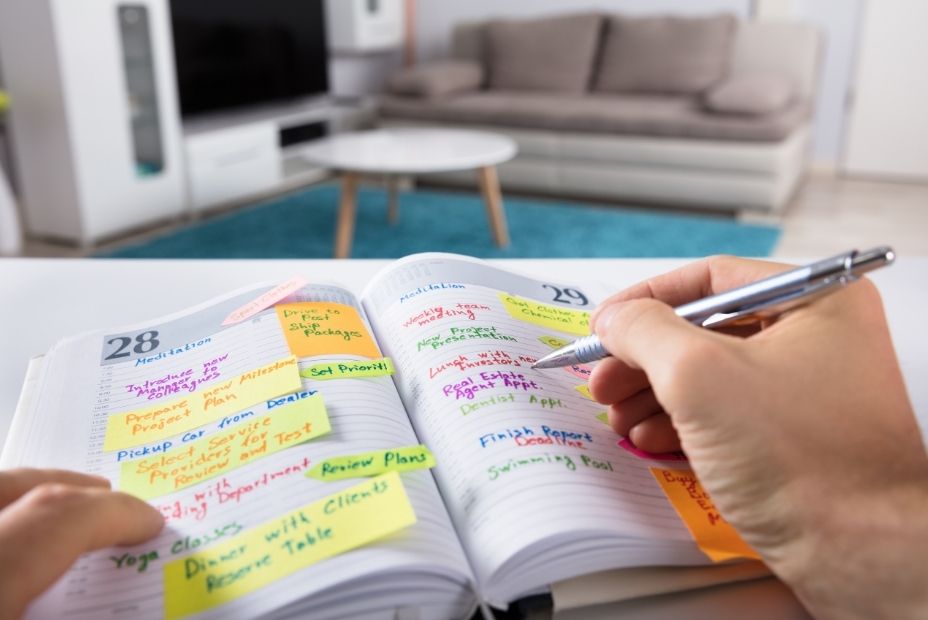 28
Meditation
Drive to
Post
Ship
Packages
Introduce new
Manager to
Colleagues
Set Priority
Prepare new Milestone
Project Plan
Pickup Car from Dealer
Select Service
Providers for
Review and Test
Review Plans
with
Department
Yoga Classes
Dinner with Clients
Reserve Table
29
Meditation
Weekly team
meeting
New Project
Presentation
Lunch with new
Investors
Real Estate
Agent Appt.
Dentist Appt.
Finish Report
Deadline
Swimming Pool